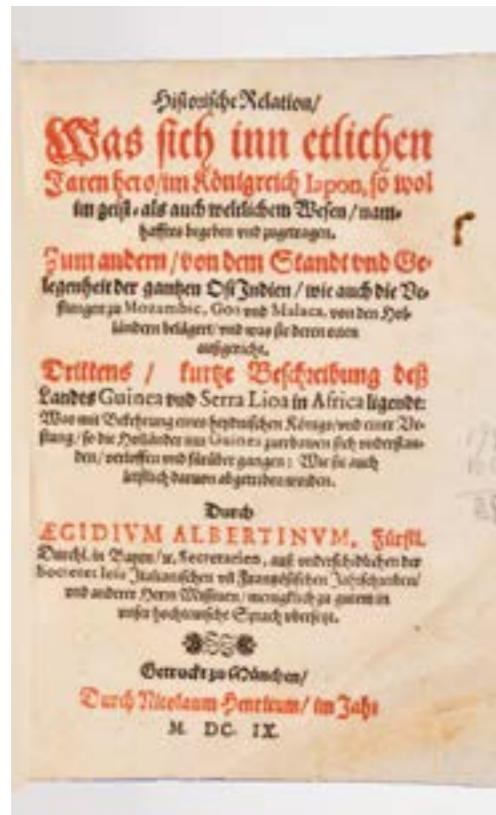 Historische Relation/
Was sich inn etlichen
Jaren hero/im Königreich Iapon, so wol
im geist- als auch weltlichem Wesen/nam-
hafftes begeben vnd zugetragen.
Zum andern/von dem Standt vnd Ge-
legenheit der gantzen Ost Indien/wie auch die Ve-
stungen zu Mozambic, Goa vnd Malaca, von den Hol-
ländern belägert/vnd was sie deren orten
außgericht.
Drittens / kurtze Beschreibung deß
Landes Guinea vnd Serra Lioa in Africa ligende:
Was mit Bekehrung eines heydnischen Königs/vnd einer Ve-
stung/so die Holländer inn Guinea zuerbawen sich vnderstan-
den/verloffen vnd fürüber gangen: Wie sie auch
letzlich daruon abgetriben worden.
Durch
ÆGIDIVM ALBERTINVM, Fürstl.
Durchl. in Bayrn/ꝛc. Secretarien, auß vnderschidlichen der
Societet Iesu Italianischen vñ Frantzösischen Jahrschreiben/
vnd anderer Herrn Missiuen/menigklich zu gutem in
vnser hochteutsche Sprach vbersetzt.
Getruckt zu München/
Durch Nicolaum Henricum/im Jahr
M. DC. IX.